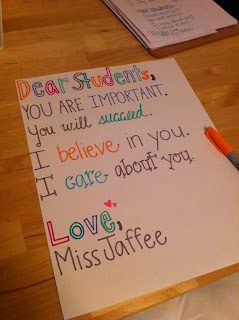 Dear Students,
YOU ARE IMPORTANT.
You will succeed.
I believe in you.
I care about you.
Love,
Miss Jaffee